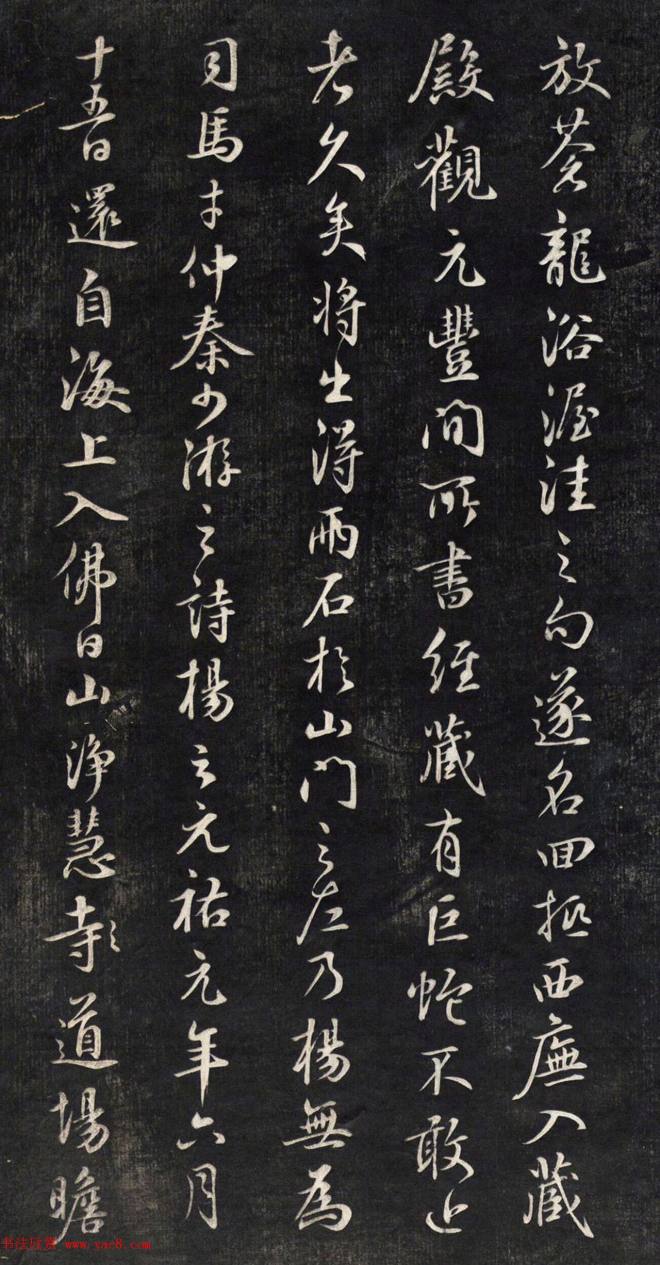 放蒼龍浴渥洼之句遂名回抵西廡入藏
殿觀元豐間所書經藏有巨蛇不敢近
者久矣將出得兩石於山門之左乃楊無為
司馬才仲秦少游之詩楊云元祐元年六月
十五日還自海上入佛日山淨慧寺〻道場瞻
书法欣赏 www.yac8.com